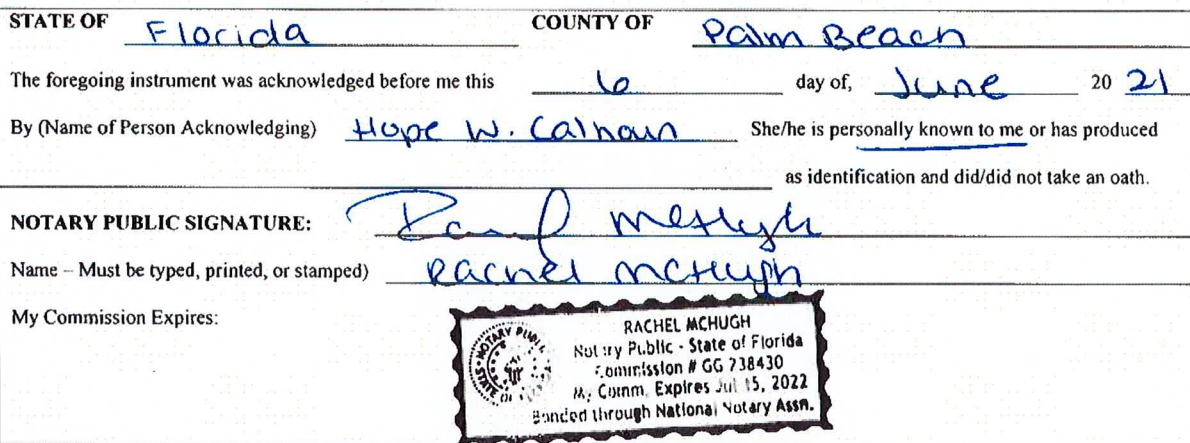 STATE OF Florida COUNTY OF Palm Beach
The foregoing instrument was acknowledged before me this 6 day of, June 20 21
By (Name of Person Acknowledging) Hope W. Calhoun She/he is personally known to me or has produced
as identification and did/did not take an oath.
NOTARY PUBLIC SIGNATURE: Rachel McHugh
Name – Must be typed, printed, or stamped) Rachel McHugh
My Commission Expires:
RACHEL MCHUGH
Notary Public - State of Florida
Commission # GG 238430
My Comm. Expires Jul 15, 2022
Bonded through National Notary Assn.
NOTARY PUBLIC